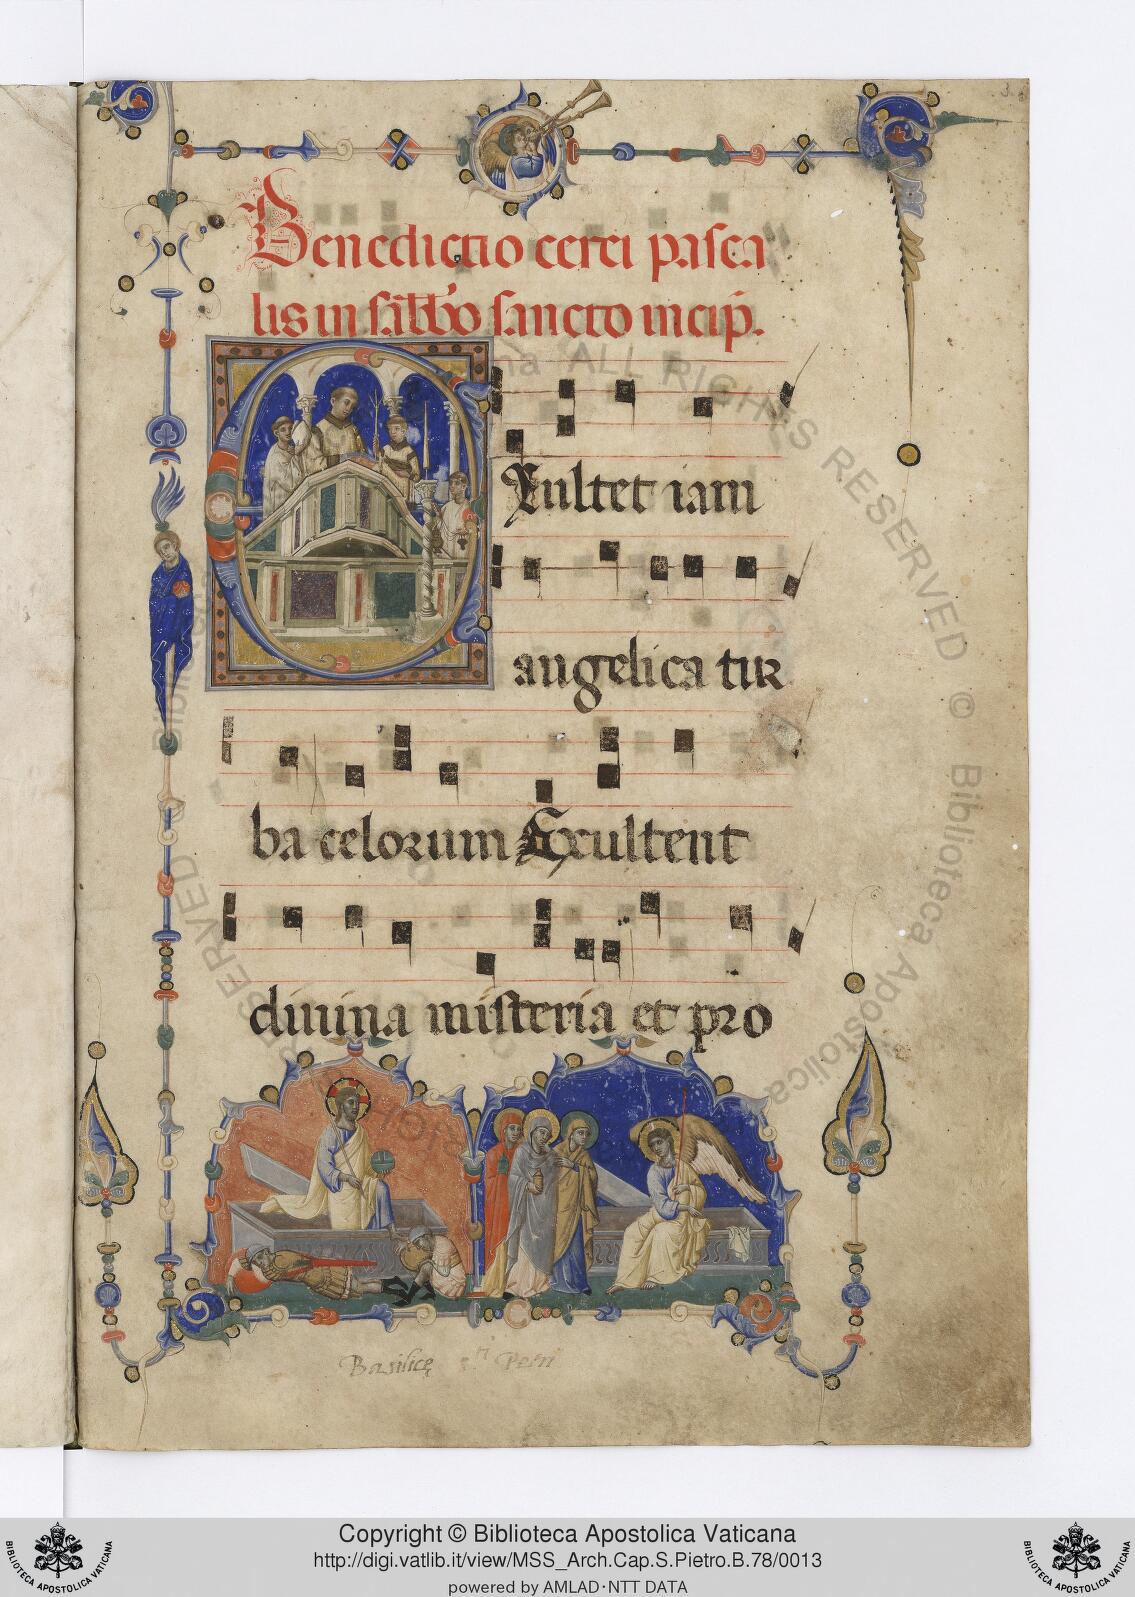 3
Benedictio cerei pasca
lis in sabbo sancto incip.
Exultet iam
angelica tur
ba celorum Exultent
divina misteria et pro
Basilicę
ALL RIGHTS RESERVED © Biblioteca Apostolica
Copyright © Biblioteca Apostolica Vaticana
http://digi.vatlib.it/view/MSS_Arch.Cap.S.Pietro.B.78/0013
powered by AMLAD·NTT DATA
BIBLIOTECA APOSTOLICA VATICANA
BIBLIOTECA APOSTOLICA VATICANA